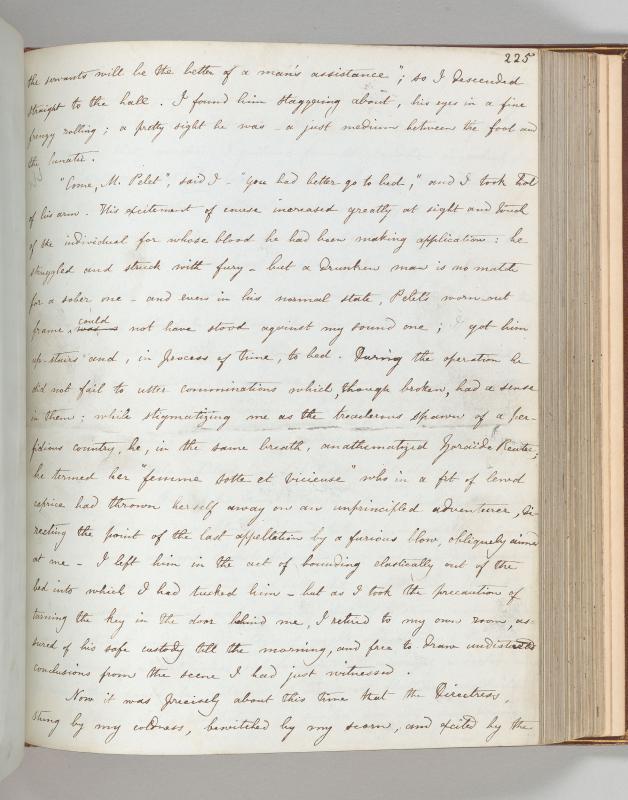 225
the servants will be the better of a man's assistance"; so I descended
straight to the hall. I found him staggering about, his eyes in a fine
frenzy rolling; a pretty sight he was - a just medium between the fool and
the lunatic.
"Come, M. Pelet", said I - "you had better go to bed," and I took hold
of his arm. His excitement of course increased greatly at sight and touch
of the individual for whose blood he had been making application: he
struggled and struck with fury - but a drunken man is no match
for a sober one - and even in his normal state, Pelet's worn out
frame, was could not have stood against my sound one; I got him
up-stairs and, in process of time, to bed. During the operation he
did not fail to utter comminations which, though broken, had a sense
in them; while stigmatizing me as the treacherous spawn of a per-
fidious country, he, in the same breath, anathematized Zoraïde Reuter;
he termed her "femme sotte et vicieuse" who in a fit of lewd
caprice had thrown herself away on an unprincipled adventurer, di-
recting the point of the last appellation by a furious blow, obliquely aimed
at me - I left him in the act of bounding elastically out of the
bed into which I had tucked him - but as I took the precaution of
turning the key in the door behind me, I retired to my own room, as-
sured of his safe custody till the morning, and free to draw undisturbed
conclusions from the scene I had just witnessed.
Now it was precisely about this time that the Directress,
stung by my coldness, bewitched by my scorn, and excited by the